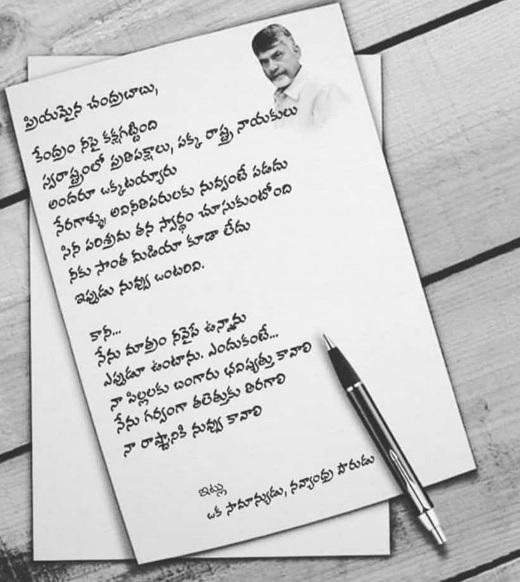 ప్రియమైన చంద్రబాబు,
కేంద్రం నపై కక్షగట్టింది
స్వరాష్ట్రంలో ప్రతిపక్షాలు, పక్క రాష్ట్ర నాయకులు
అందరూ ఒక్కటయ్యారు
నేరగాళ్ళు, అవినీతిపరులకు నువ్వంటే పడదు
సినీ పరిశ్రమ తన స్వార్థం చూసుకుంటోంది
నకు సొంత మీడియా కూడా లేదు
ఇప్పుడు నువ్వు ఒంటరివి.
కానీ...
నేను మాత్రం నవైపే ఉన్నాను
ఎప్పుడూ ఉంటాను. ఎందుకంటే...
నా పిల్లలకు బంగారు భవిష్యత్తు కావాలి
నేను గర్వంగా తలెత్తుకు తిరగాలి
నా రాష్ట్రానికి నువ్వు కావాలి
ఇట్లు
ఒక సామాన్యుడు, నవ్యాంధ్ర పౌరుడు